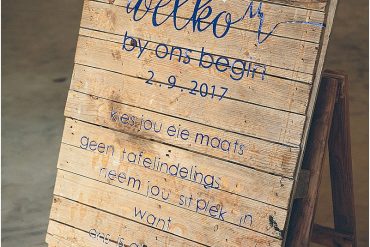 welko
by ons begin
2.9.2017
kies jou eie maats
geen tafelindelings
neem jou sitplek in
want